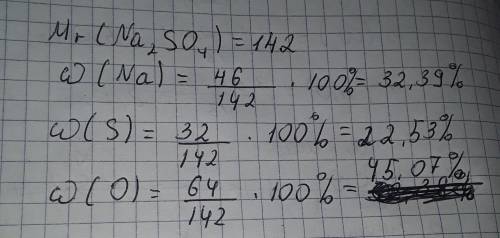 Mr(Na₂SO₄)=142
ω(Na) = 46/142 · 100% = 32,39%
ω(S) = 32/142 · 100% = 22,53%
ω(O) = 64/142 · 100% = 45,07%